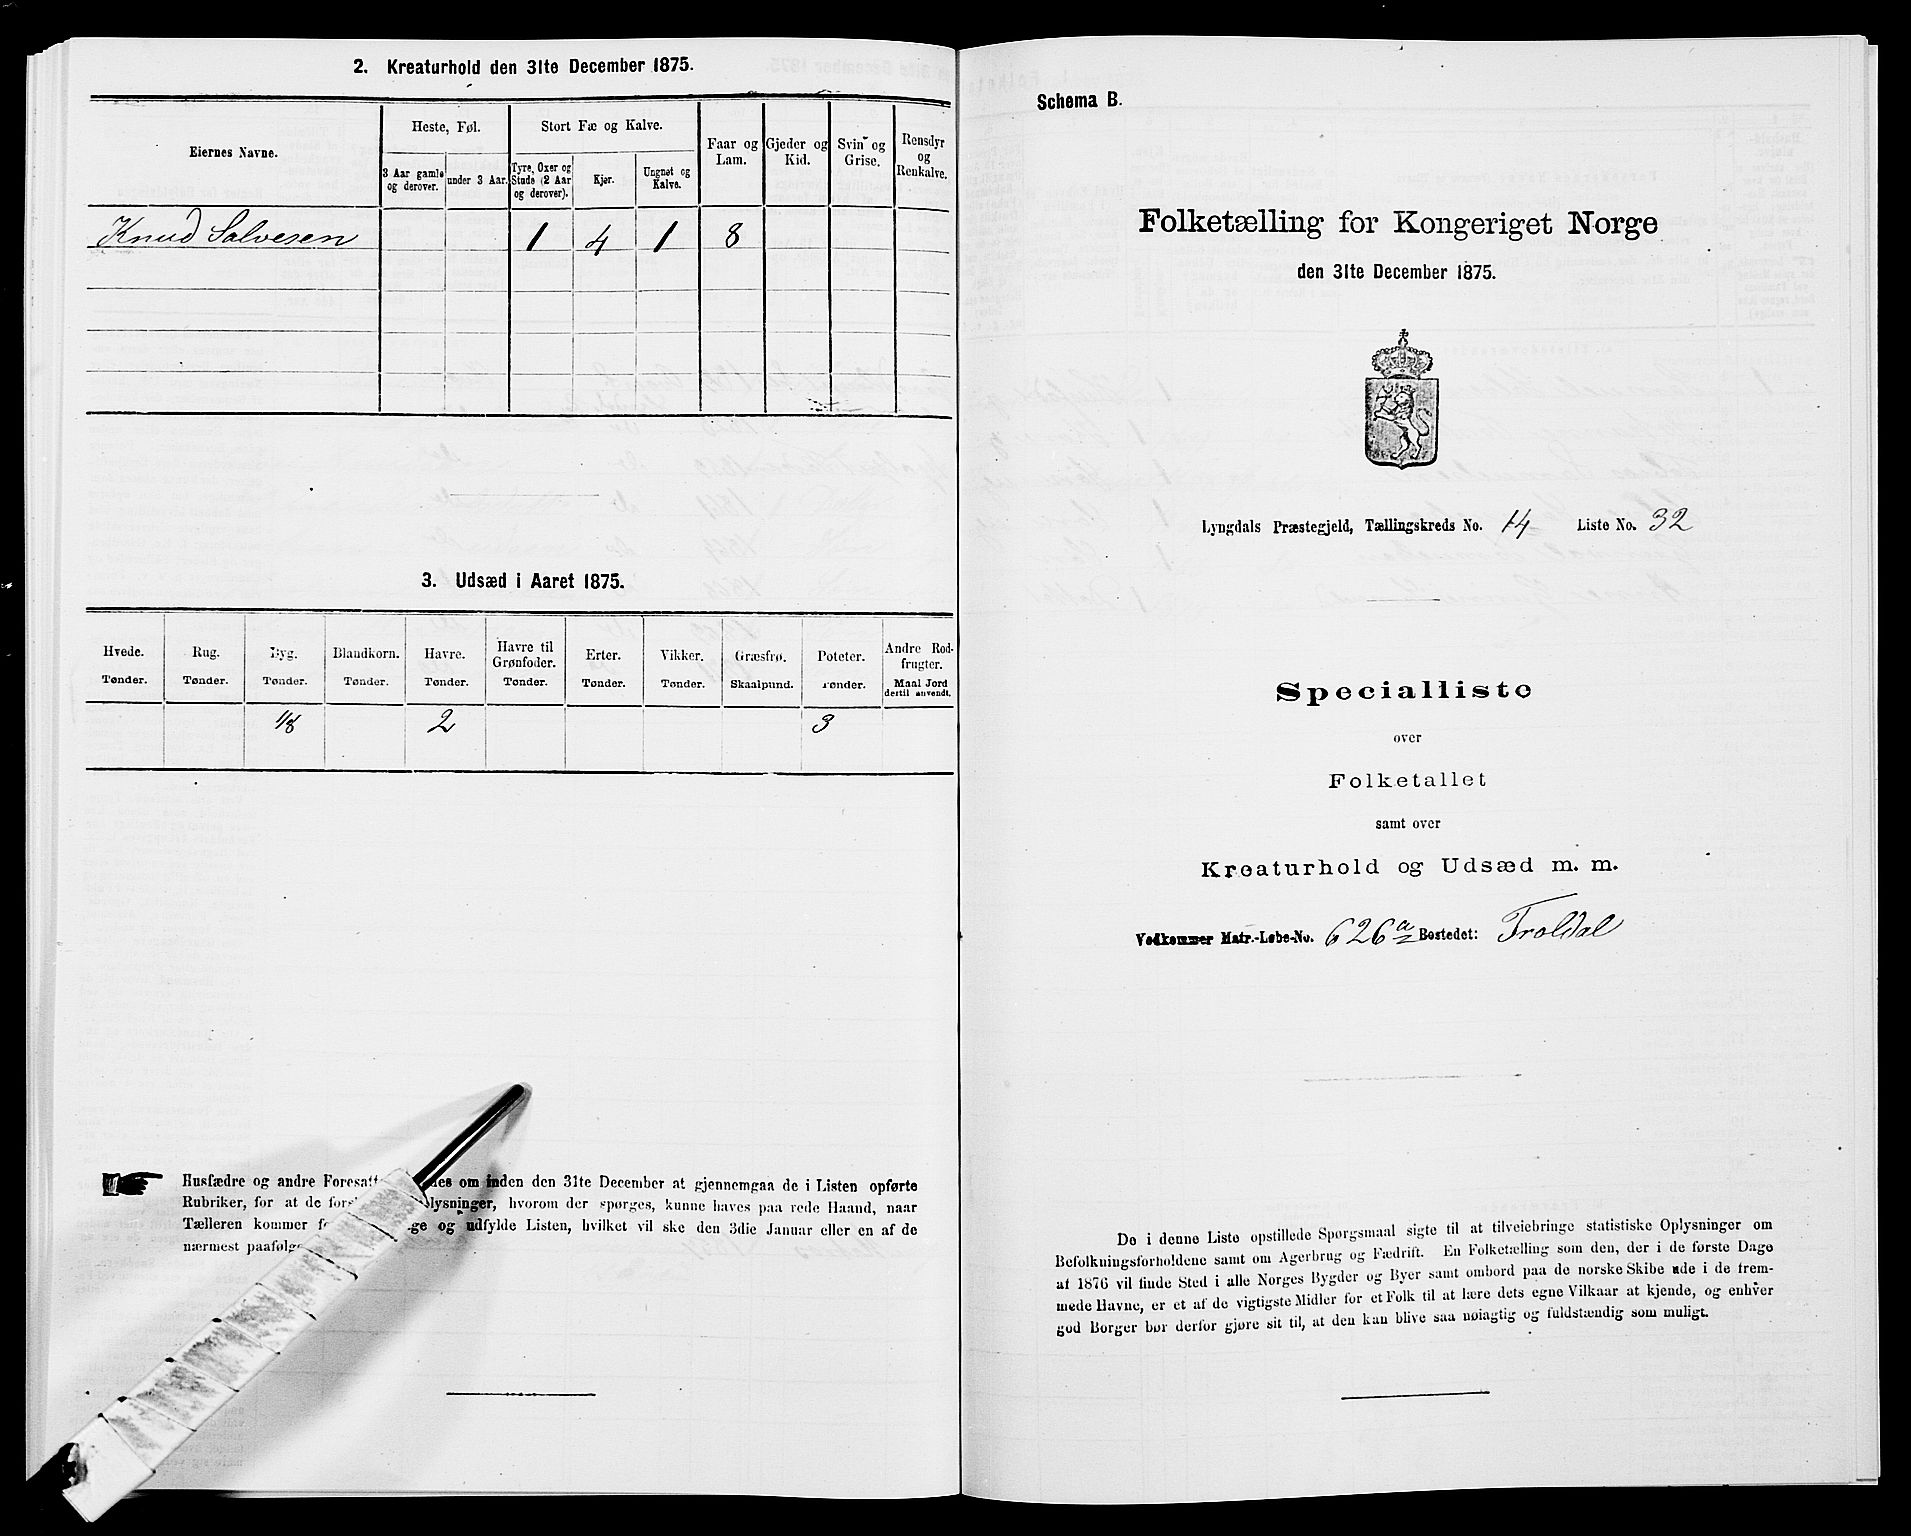 2. Kreaturhold den 31te December 1875.
Eiernes Navne.
Heste, Føl.
Stort Fæ og Kalve.
Faar og Lam.
Gjeder og Kid.
Svin og Grise.
Rensdyr og Renkalve.
3 Aar gamle og derover.
under 3 Aar.
Tyre, Oxer og Stude (2 Aar og derover).
Kjør.
Ungnøt og Kalve.
Knud Salvesen 1 4 1 8
3. Udsæd i Aaret 1875.
Hvede. Rug. Byg. Blandkorn. Havre. Havre til Grønfoder. Erter. Vikker. Græsfrø. Poteter. Andre Rodfrugter.
Tønder. Tønder. Tønder. Tønder. Tønder. Tønder. Tønder. Tønder. Skaalpund. Tønder. Maal Jord dertil anvendt.
1/8 2 3
Husfædre og andre Foresatte
des om inden den 31te December at gjennemgaa de i Listen opførte
Rubriker, for at de
plysninger, hvorom der spørges, kunne haves paa rede Haand, naar
Tælleren kommer
ge og udfylde Listen, hvilket vil ske den 3die Januar eller en af de
nærmest paafølge
Schema B.
Folketælling for Kongeriget Norge
den 31te December 1875.
Lyngdals Præstegjeld, Tællingskreds No. 14 Liste No. 32
Specialliste
over
Folketallet
samt over
Kreaturhold og Udsæd m. m.
Vedkommer Matr.-Løbe-No. 626a Bostedet: Troldal
De i denne Liste opstillede Spørgsmaal sigte til at tilveiebringe statistiske Oplysninger om
Befolkningsforholdene samt om Agerbrug og Fædrift. En Folketælling som den, der i de første Dage
af 1876 vil finde Sted i alle Norges Bygder og Byer samt ombord paa de norske Skibe ude i de frem-
mede Havne, er et af de vigtigste Midler for et Folk til at lære dets egne Vilkaar at kjende, og enhver
god Borger bør derfor gjøre sit til, at den kan blive saa nøiagtig og fuldstændig som muligt.